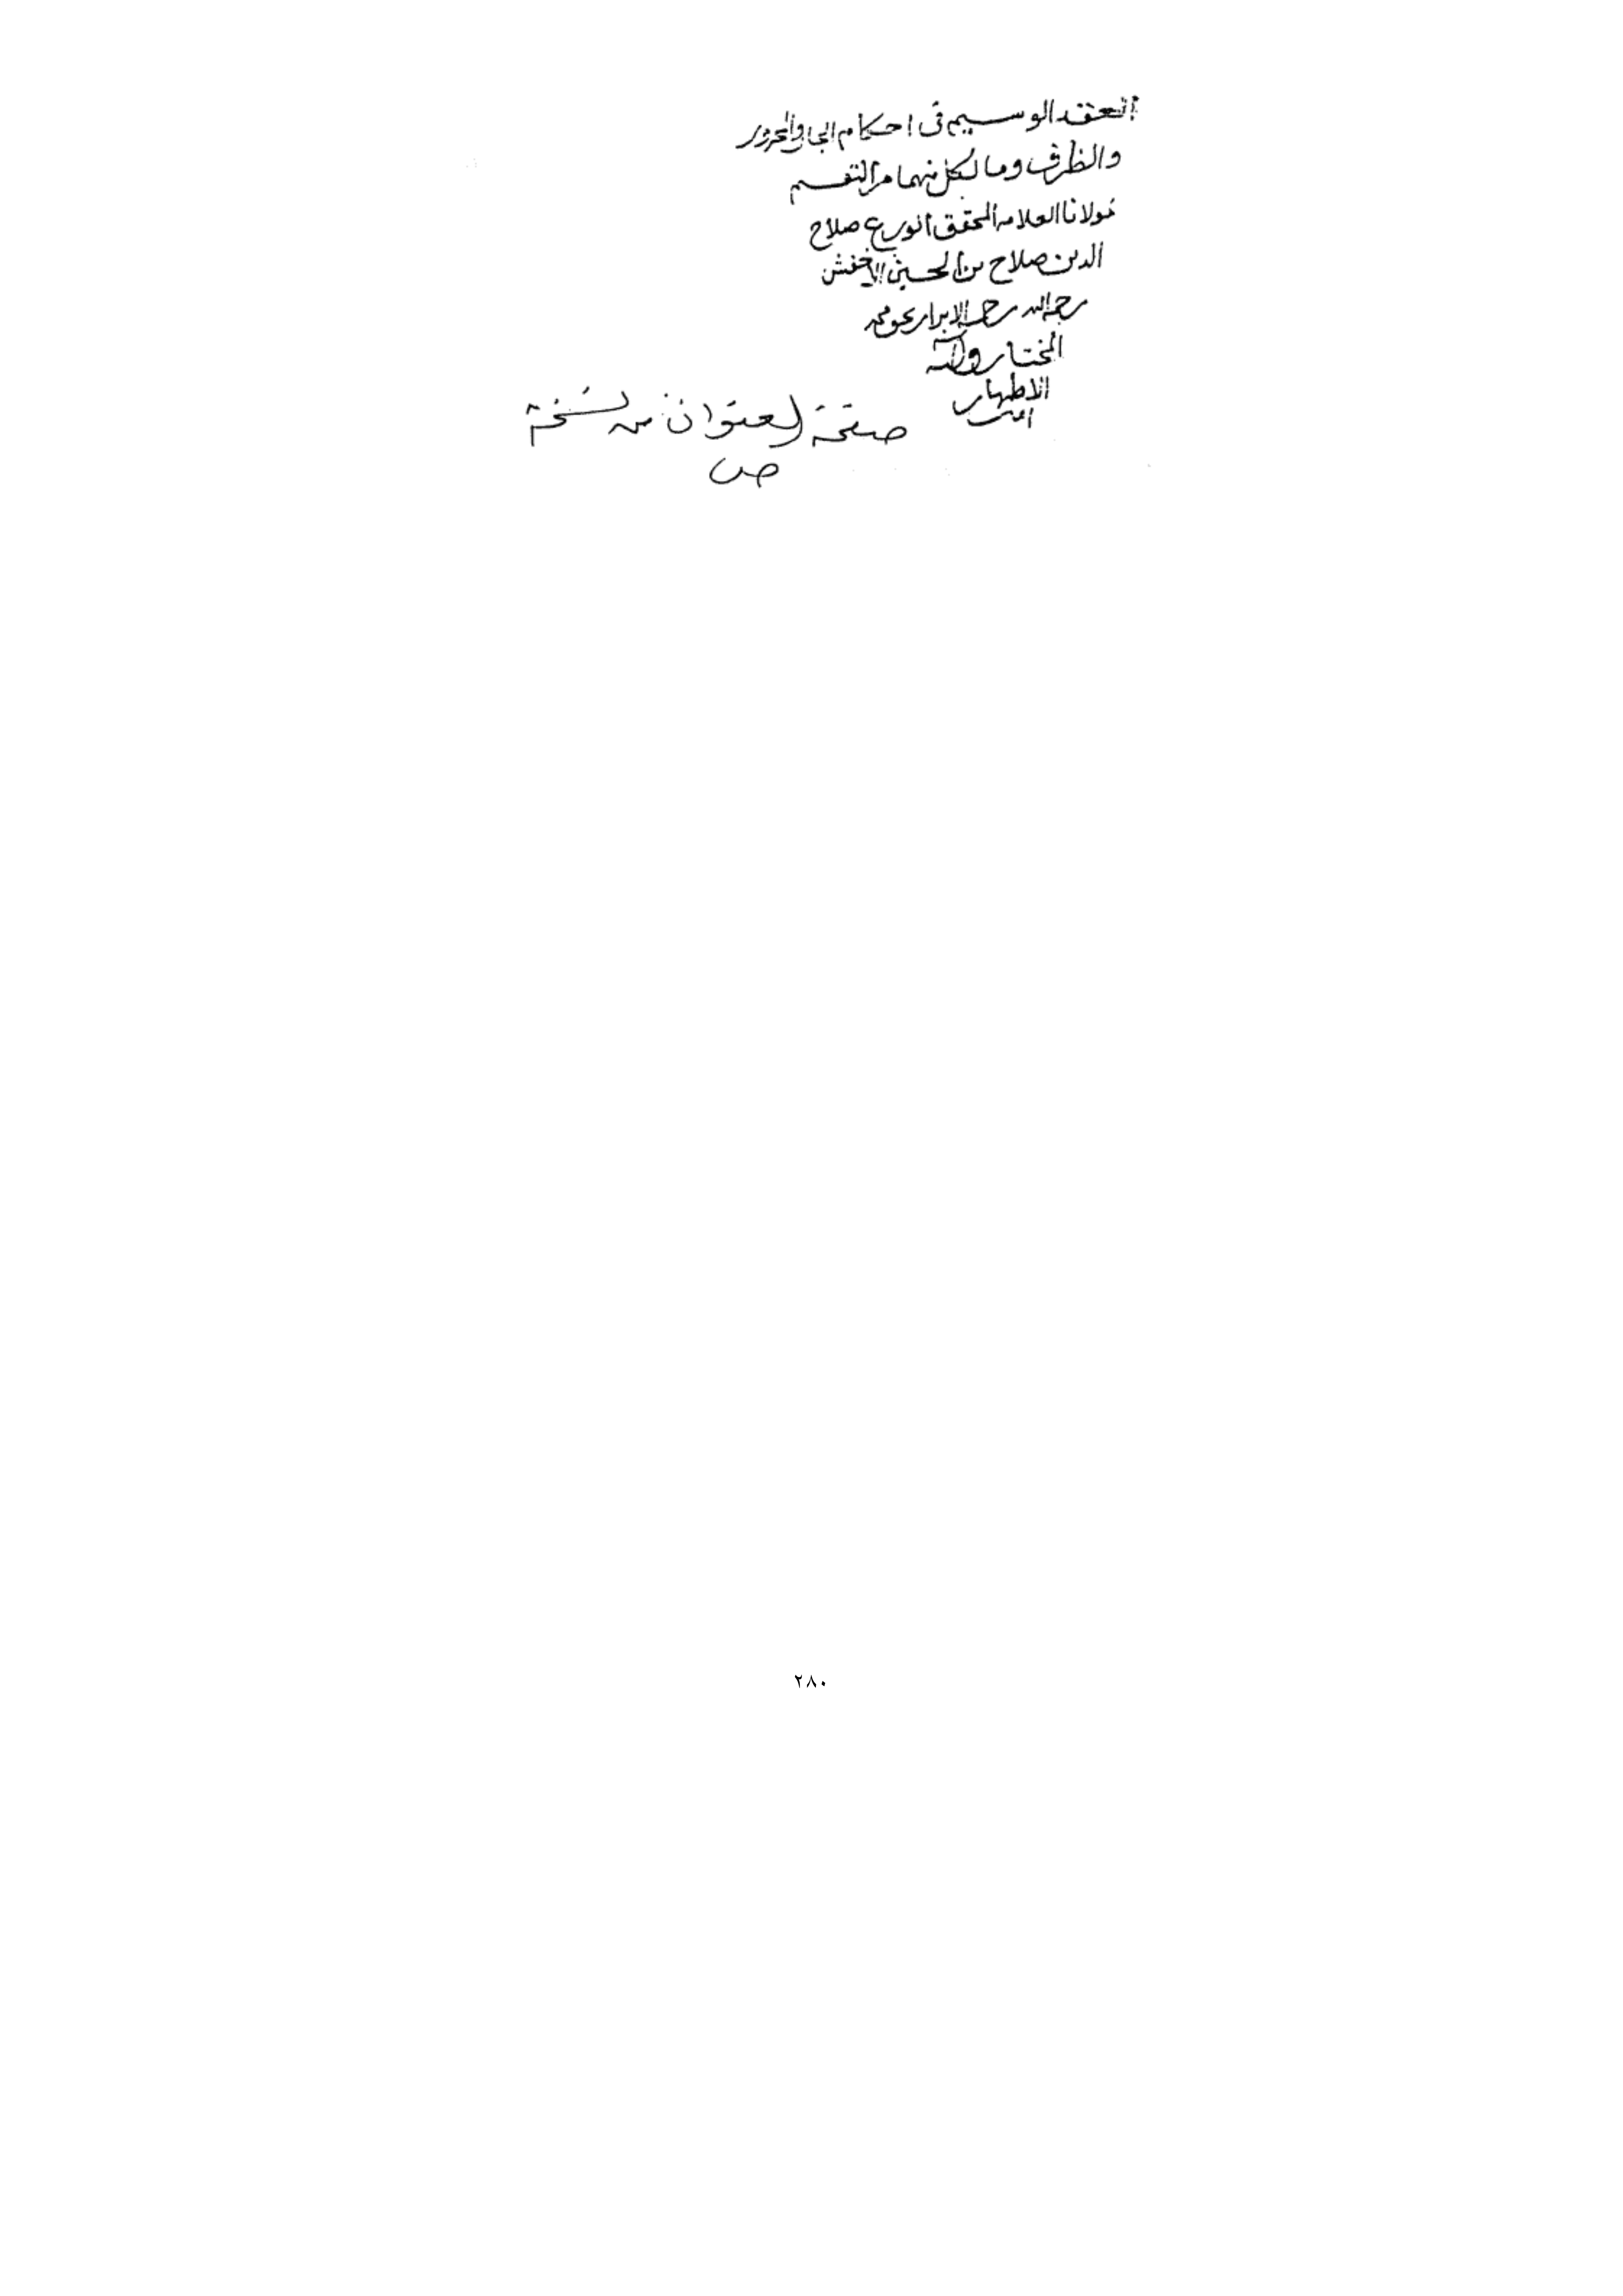 العقد الوسيم في احكام الجار والمجرور
والظرف وما لكل منهما من التقسيم
مولانا العلامه المحقق الورع صلاح
الدين صلاح بن الحسين الاخفش
رحمه الله رحمة الابرار بحق محمد
المختار وآله
الاطهار
امين
صفحة العنوان من نسخة
ص
٢٨٠